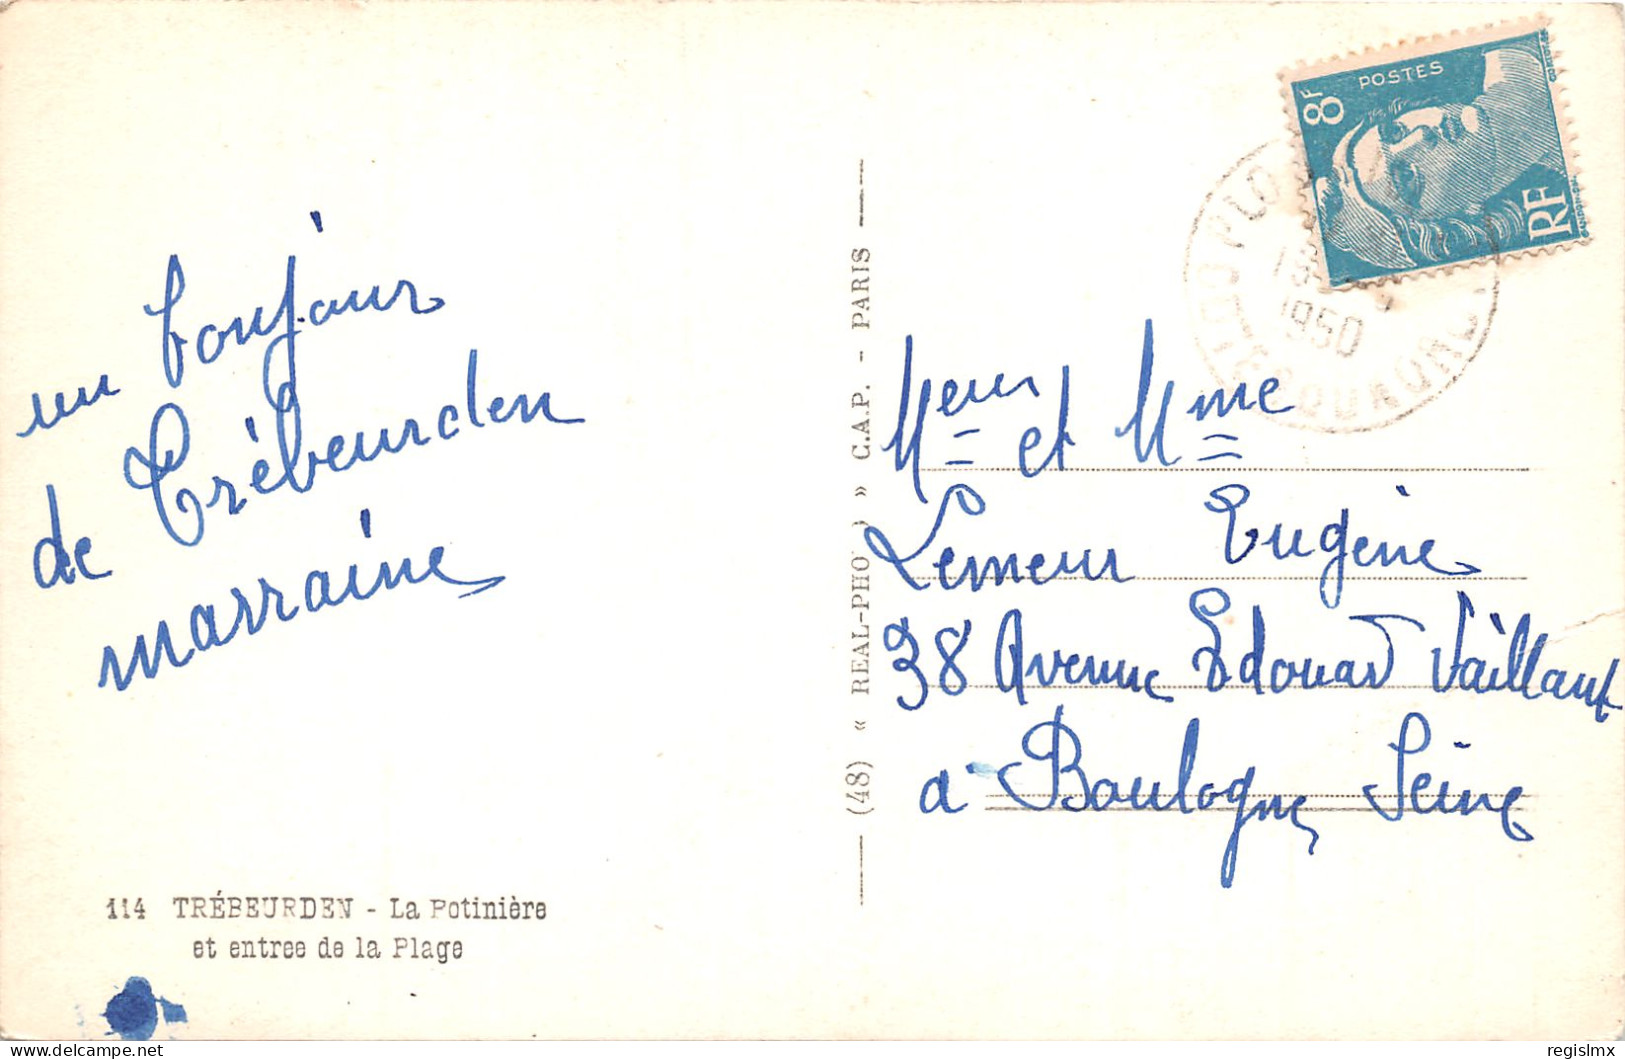 un bonjour
de Trébeurden
marraine
114 TRÉBEURDEN - La Potinière
et entree de la Plage
(48) « REAL-PHOTO » C.A.P. - PARIS
POSTES
8F
RF
1950
Meur et Mme
Lemeur Eugène
38 Avenue Edouard Vaillant
a Boulogne Seine
regislmx